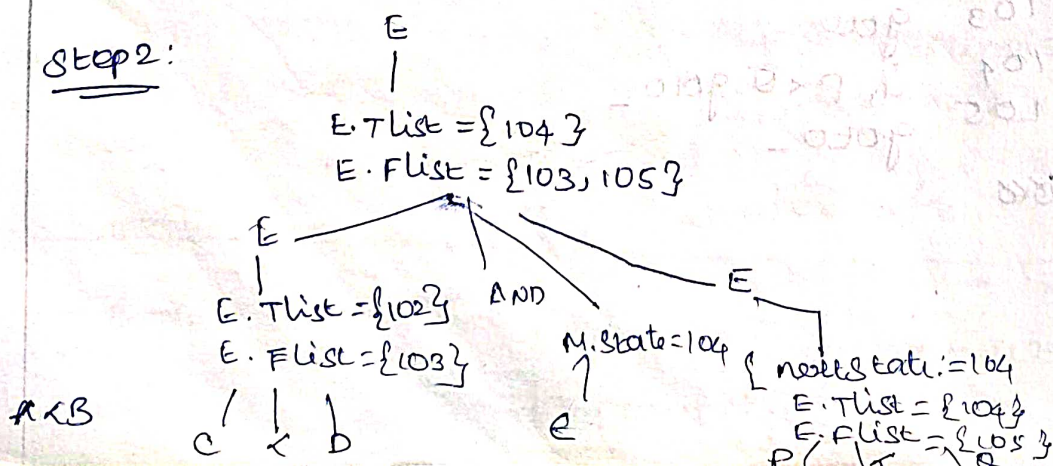 Step 2:
E
E.Tlist = {104}
E.Flist = {103, 105}
E
AND
E
E.Tlist = {102}
E.Flist = {103}
M.State = 104
{ nextstate := 104
E.Tlist = {104}
E.Flist = {105}
A < B
C < D
e
P <